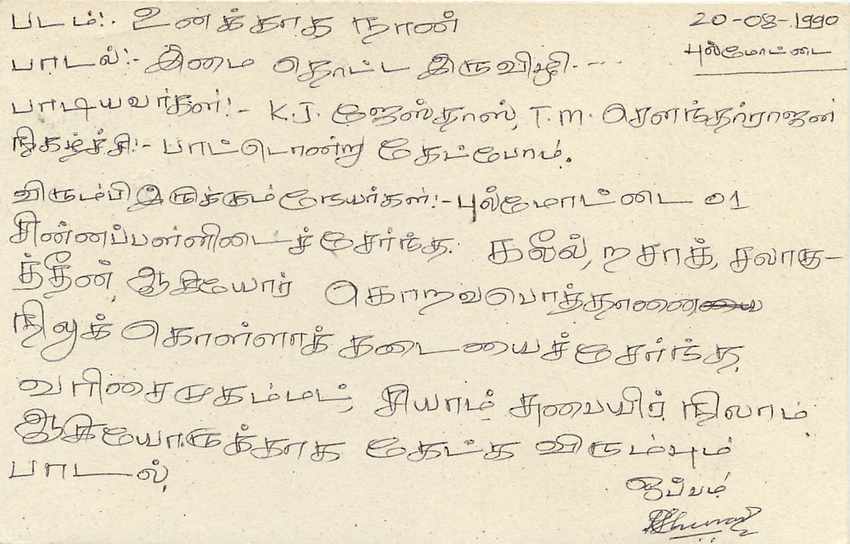 படம்:- உனக்காக நான்
20-08-1990
புல்மோட்டை
பாடல்:- இமை தொட்ட இருவிழி- --
பாடியவர்கள்:- K.J. ஜேஸ்தாஸ், T.M. சௌந்தர்ராஜன்
நிகழ்ச்சி:- பாட்டொன்று கேட்போம்.
விரும்பி இருக்கும் நேயர்கள்:- புல்மோட்டை 01
சின்னப்பள்ளிடைச்சேர்ந்த. கலீல், றசாக், சலாகு-
த்தீன், ஆகியோர் கொறவபொத்தானை
நிலுக் கொள்ளாக் கடையைச்சேர்ந்த,
வரிசைமுகம்மட், சியாம், சுபையிர், நிலாம்
ஆகியோருக்காக கேட்க விரும்பும்
பாடல்,
ஒப்பம்